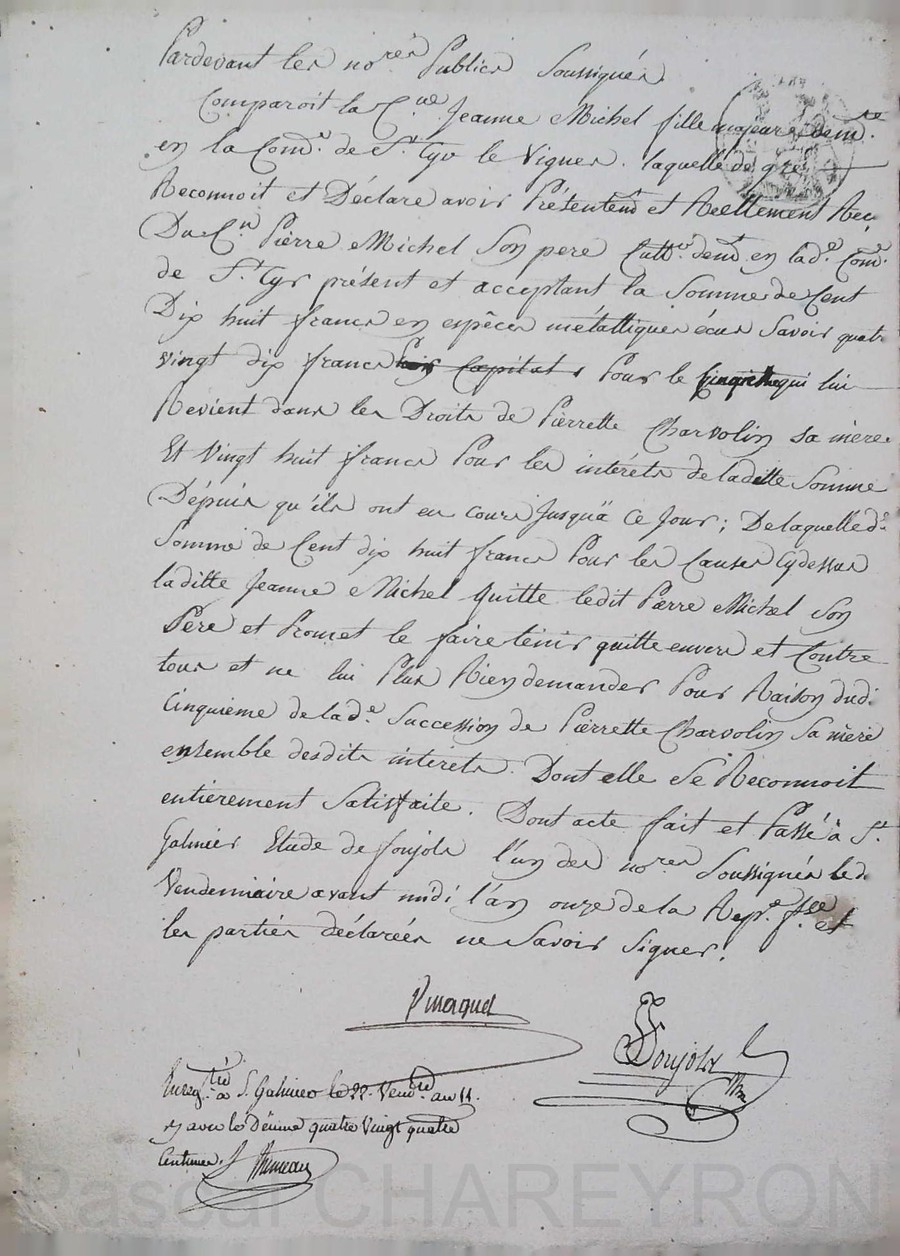 Pardevant les no.res Publics Soussignés
Comparoit la C.ne Jeanne Michel fille majeure dem.te
en la Com.e de S.t Cyr le Vignes. laquelle de gré
Reconnoit et Déclare avoir Présentem.t et Réellement Reçu
Du C.n Pierre Michel Son pere Cult.r dem.t en lad.e Com.e
de S.t Cyr présent et acceptant la Somme de Cent
Dix huit francs en espèces métalliques écus Savoir quatre
vingt dix francs Capital Pour le Cinquième qui lui
Revient dans les Droits de Pierrette Charvolin Sa mère
Et Vingt huit francs Pour les intérêts de laditte Somme
Dépuis qu'ils ont eu cours Jusqu'à Ce Jour; De laquelle d.e
Somme de Cent dix huit francs Pour les Causes Cydessus
laditte Jeanne Michel Quitte ledit Pierre Michel Son
Père et Promet le faire tenir quitte envers et Contre
tous et ne lui Plus Rien demander Pour Raison dud.
Cinquième de lad.e Succession de Pierrette Charvolin Sa mère
ensemble desdits intérêts. Dont elle Se Reconnoit
entièrement Satisfaite. Dont acte fait et Passé à S.t
Galmier Etude de Soujols l'un des no.res Soussignés le d.
Vendemiaire avant midi l'an onze de la Rep.e f.see et
les parties déclarées ne Savoir Signer.
Soujols
Enreg.tré à S. Galmier le 22 Vend.re an 11.
quatre Vingt quatre
Centimes
Pascal CHAREYRON